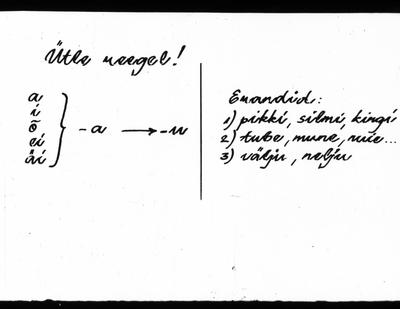 Ütle reegel!
a
i
õ
ei
äi
-a → -u
Erandid:
1) pikki, silmi, kingi
2) tube, mune, nuie...
3) välju, nelju